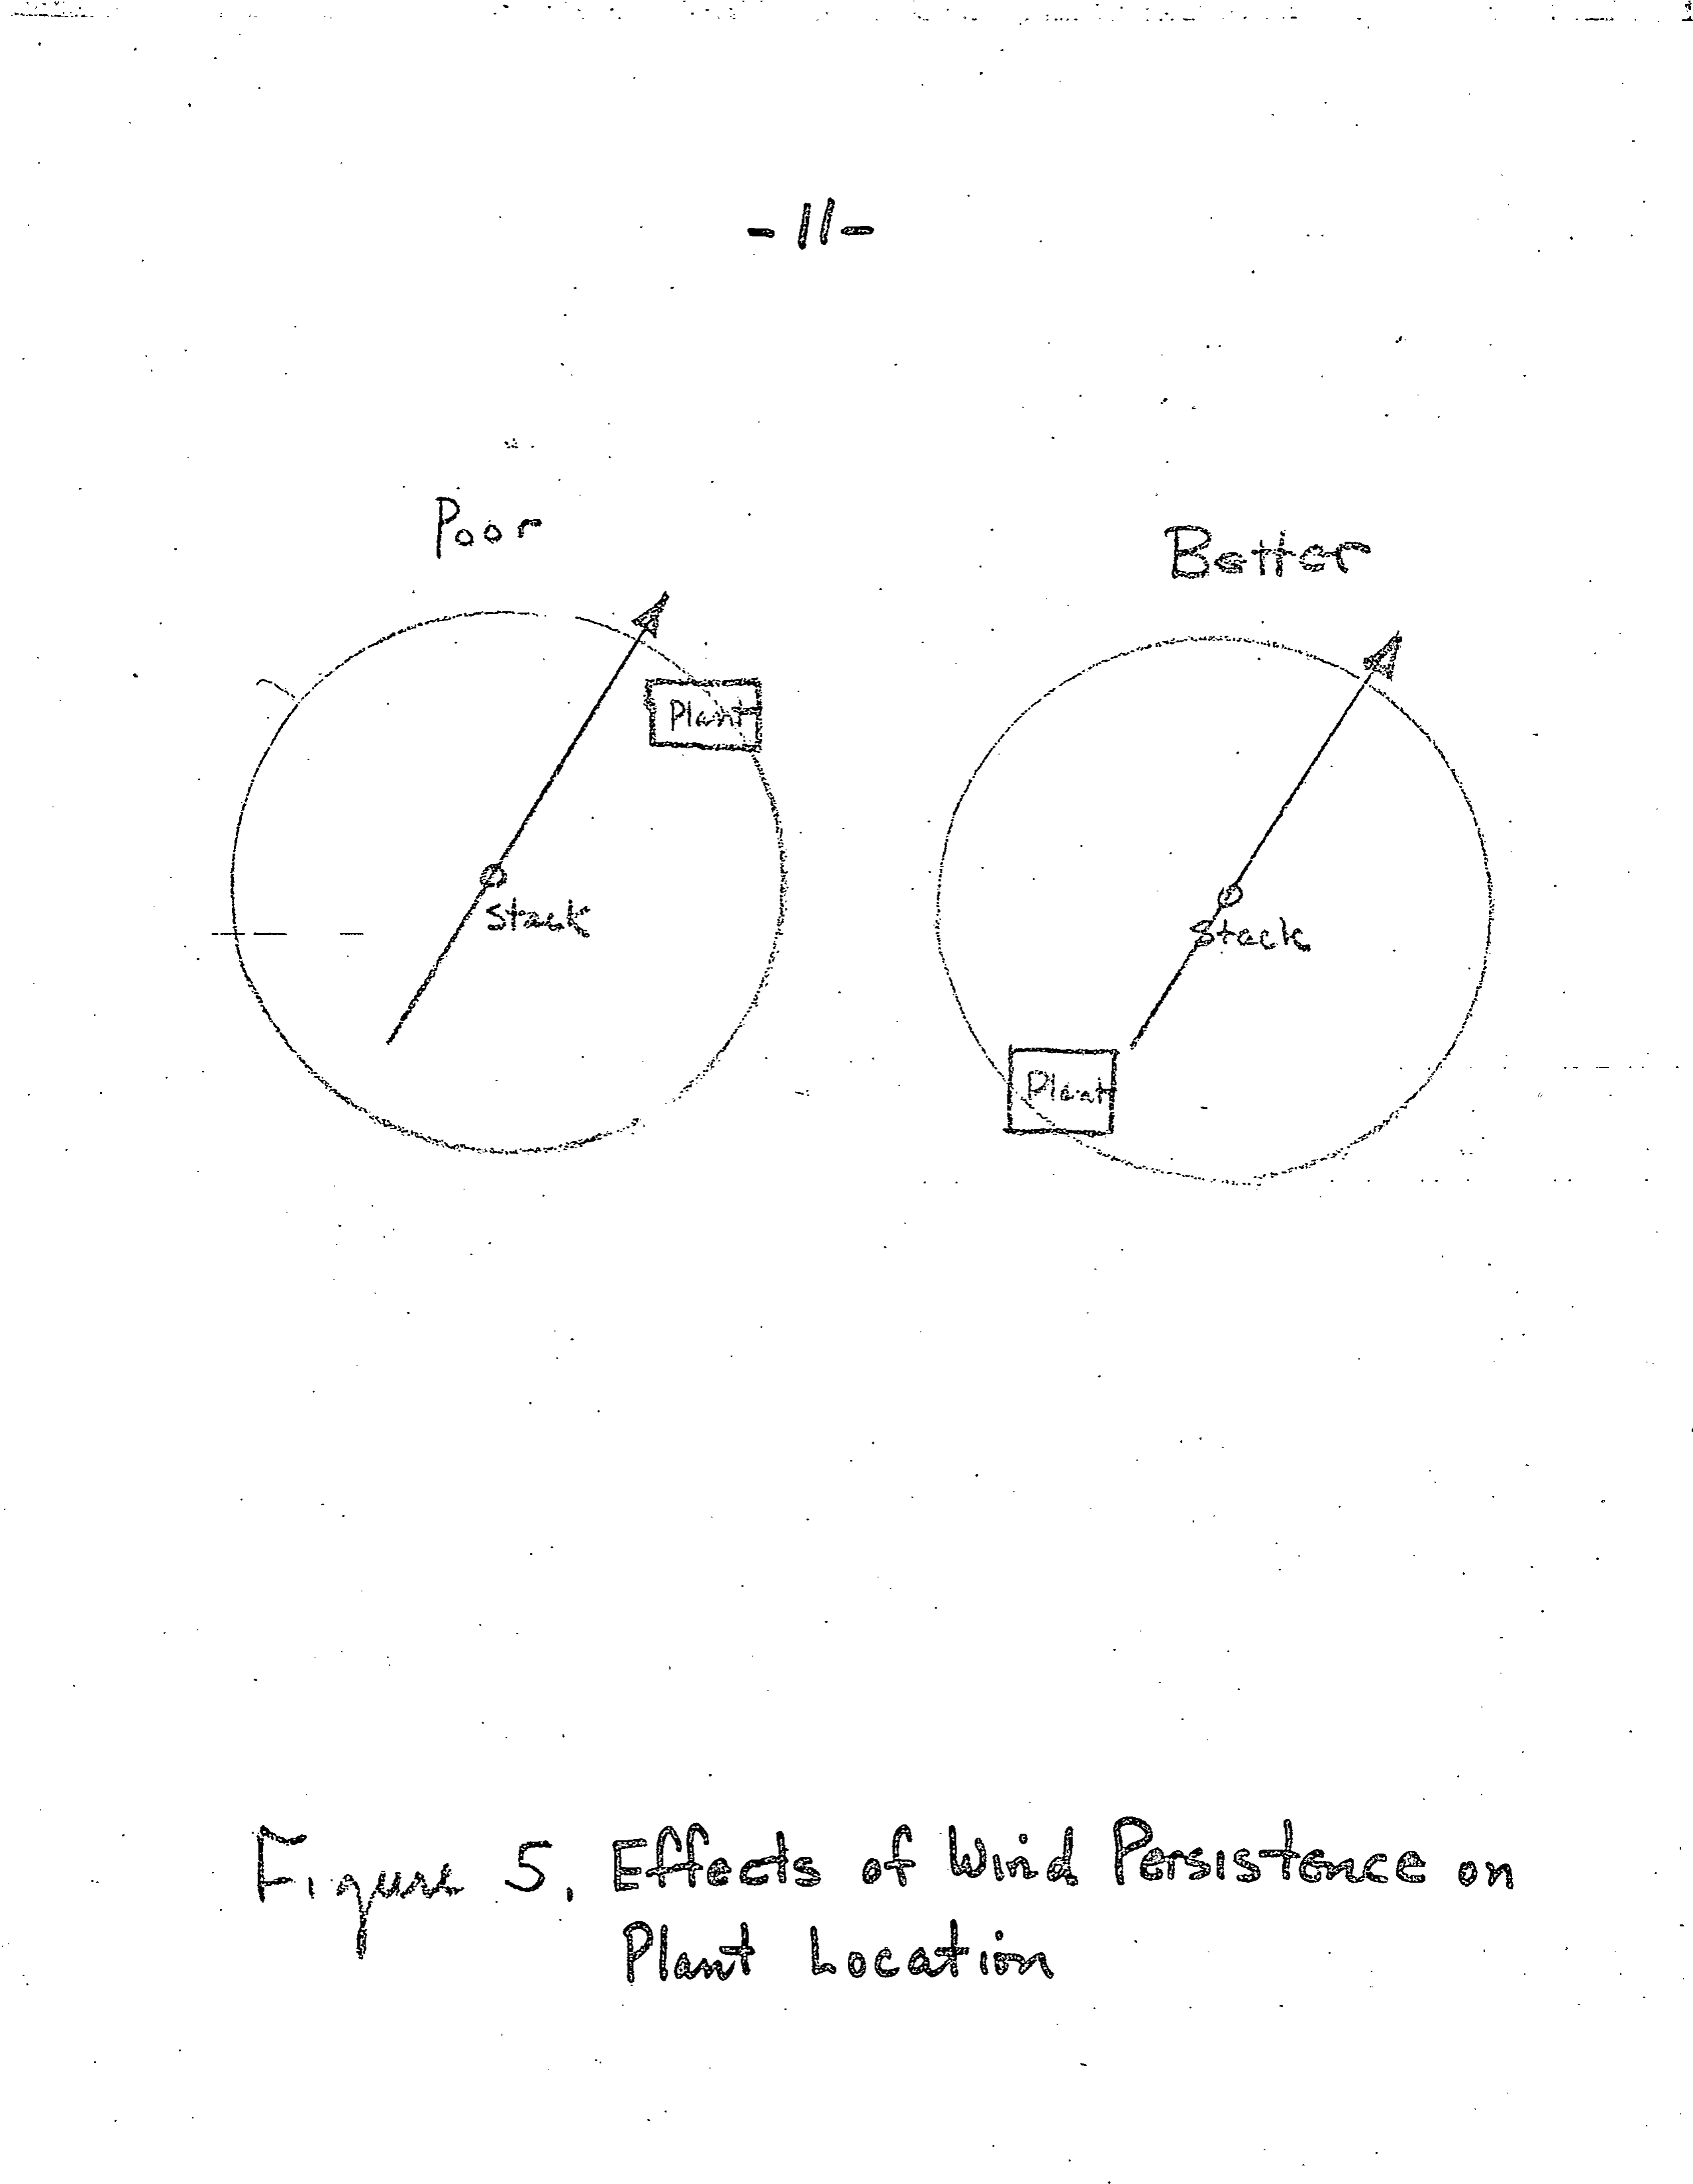 -11-
Poor
Better
Plant
Stack
Stack
Plant
Figure 5. Effects of Wind Persistence on
Plant Location